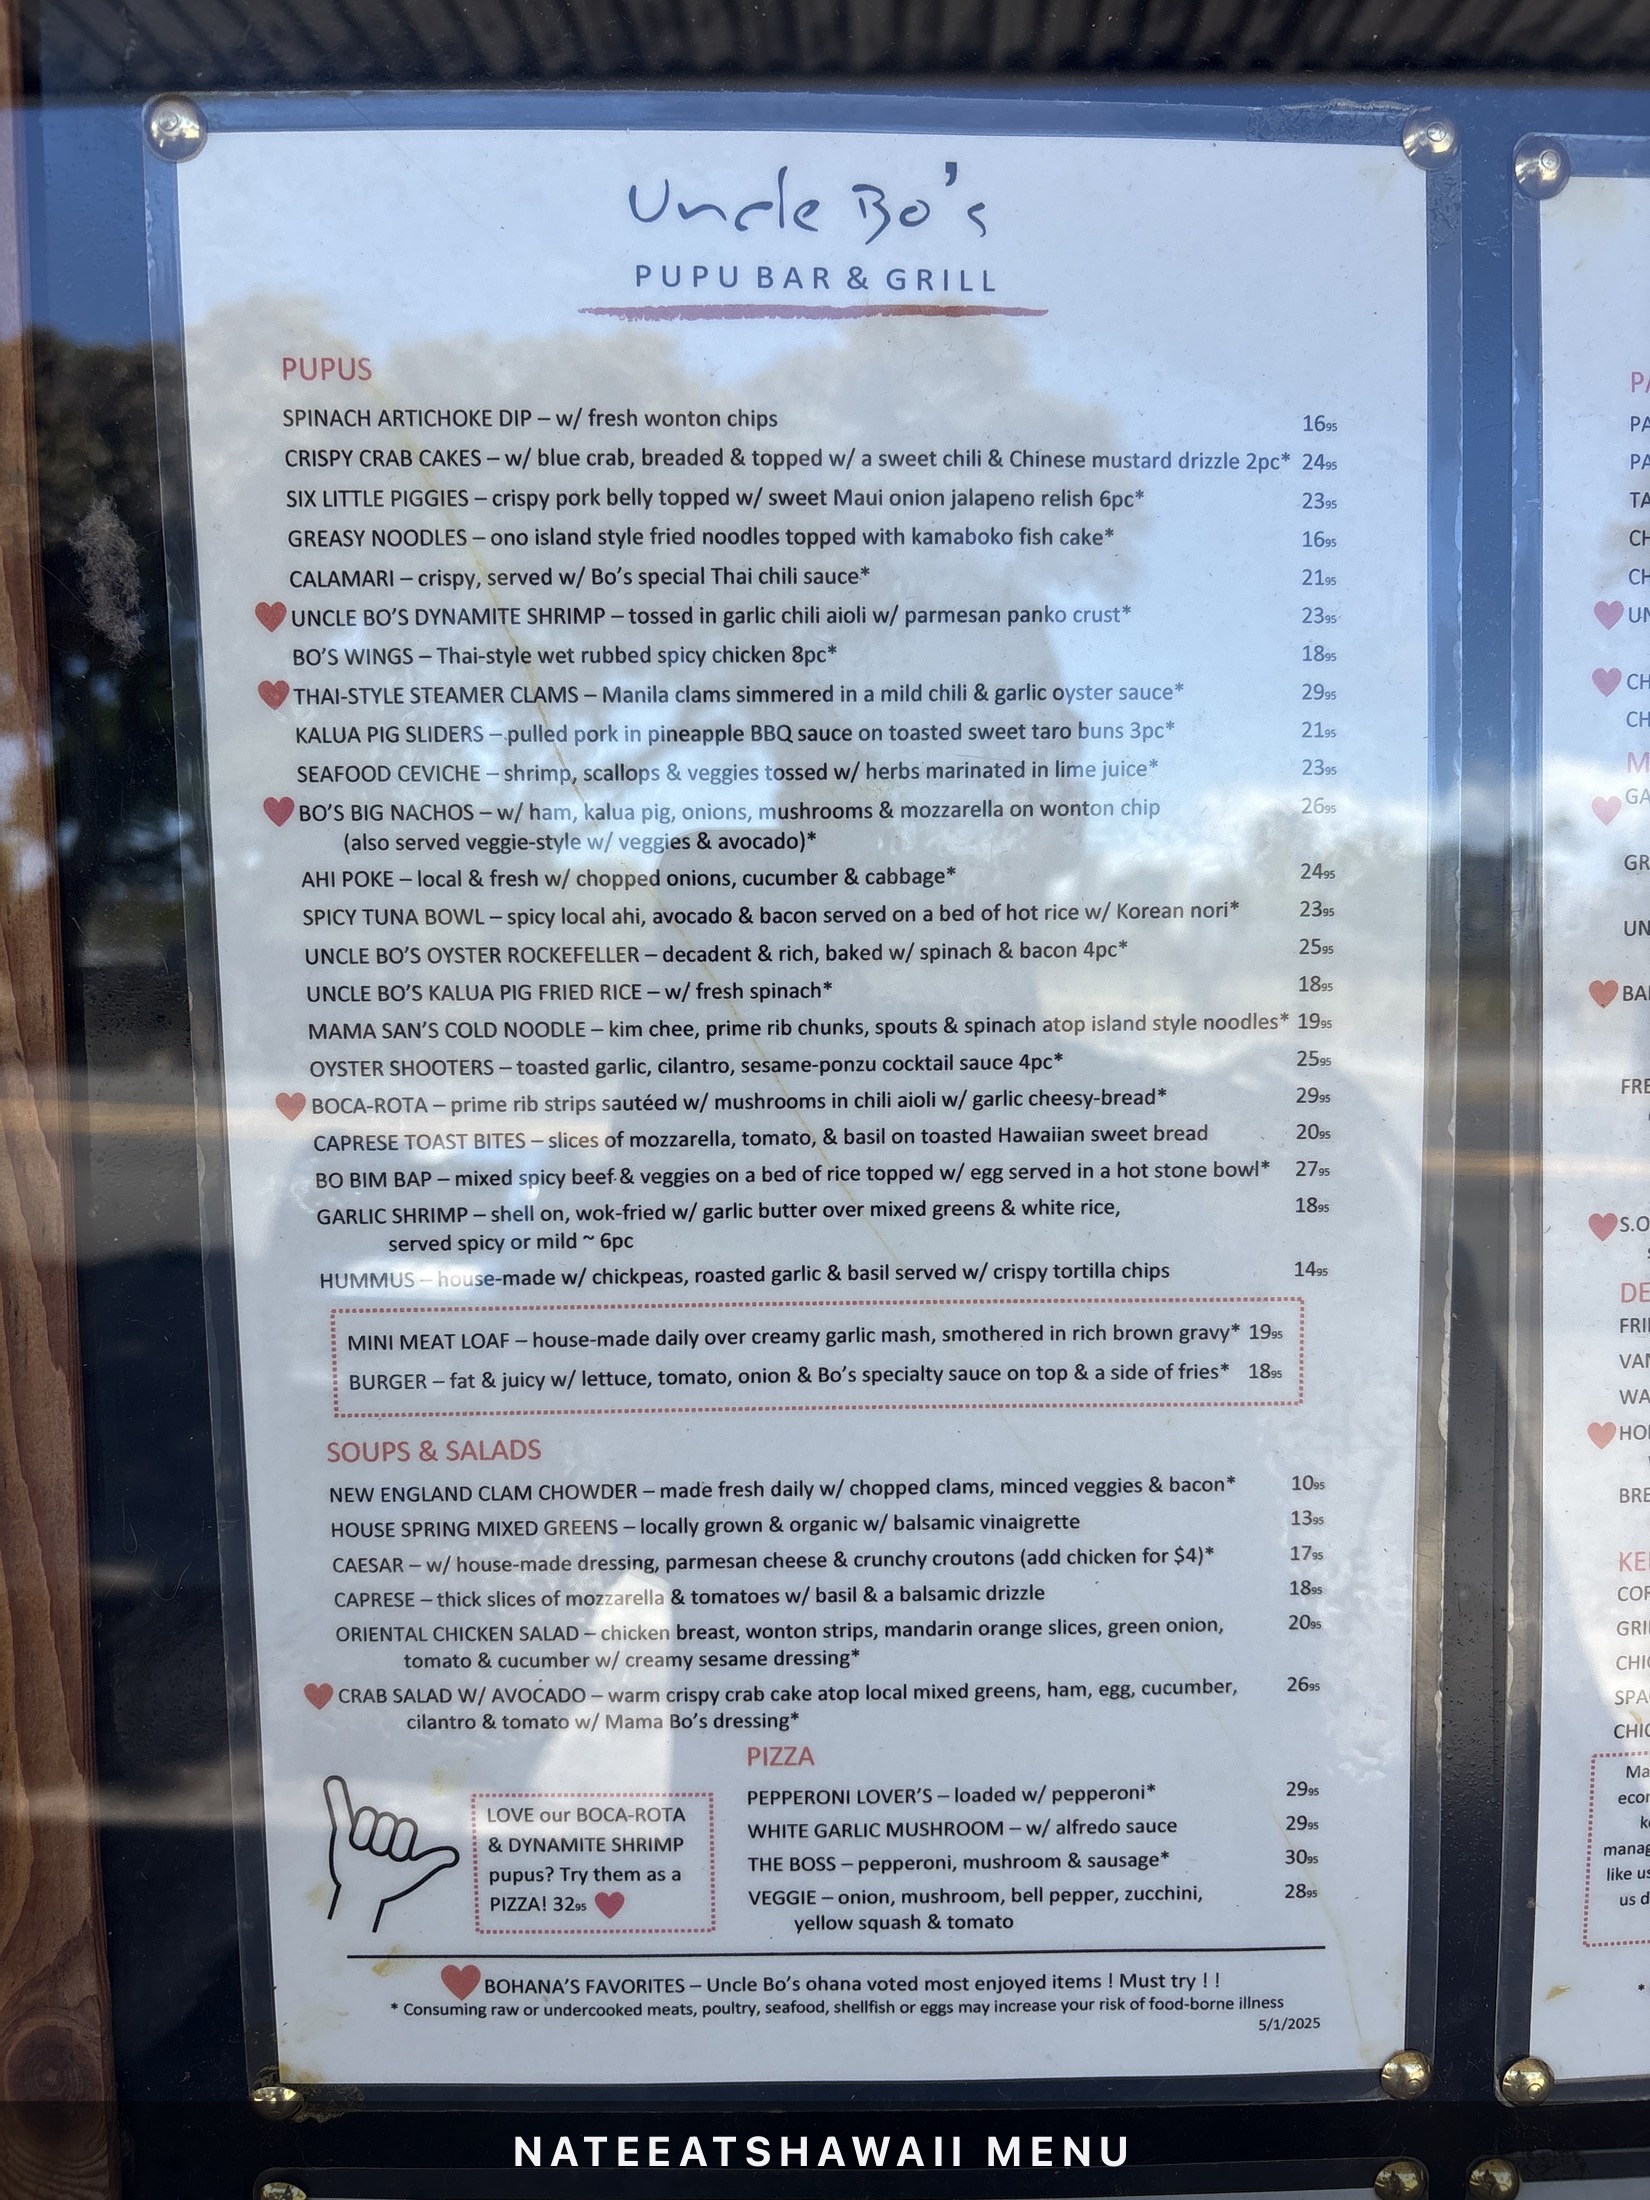 Uncle Bo's
PUPU BAR & GRILL
PUPUS
SPINACH ARTICHOKE DIP – w/ fresh wonton chips 1695
CRISPY CRAB CAKES – w/ blue crab, breaded & topped w/ a sweet chili & Chinese mustard drizzle 2pc* 2495
SIX LITTLE PIGGIES – crispy pork belly topped w/ sweet Maui onion jalapeno relish 6pc* 2395
GREASY NOODLES – ono island style fried noodles topped with kamaboko fish cake* 1695
CALAMARI – crispy, served w/ Bo's special Thai chili sauce* 2195
UNCLE BO'S DYNAMITE SHRIMP – tossed in garlic chili aioli w/ parmesan panko crust* 2395
BO'S WINGS – Thai-style wet rubbed spicy chicken 8pc* 1895
THAI-STYLE STEAMER CLAMS – Manila clams simmered in a mild chili & garlic oyster sauce* 2995
KALUA PIG SLIDERS – pulled pork in pineapple BBQ sauce on toasted sweet taro buns 3pc* 2195
SEAFOOD CEVICHE – shrimp, scallops & veggies tossed w/ herbs marinated in lime juice* 2395
BO'S BIG NACHOS – w/ ham, kalua pig, onions, mushrooms & mozzarella on wonton chip 2695
(also served veggie-style w/ veggies & avocado)*
AHI POKE – local & fresh w/ chopped onions, cucumber & cabbage* 2495
SPICY TUNA BOWL – spicy local ahi, avocado & bacon served on a bed of hot rice w/ Korean nori* 2395
UNCLE BO'S OYSTER ROCKEFELLER – decadent & rich, baked w/ spinach & bacon 4pc* 2595
UNCLE BO'S KALUA PIG FRIED RICE – w/ fresh spinach* 1895
MAMA SAN'S COLD NOODLE – kim chee, prime rib chunks, spouts & spinach atop island style noodles* 1995
OYSTER SHOOTERS – toasted garlic, cilantro, sesame-ponzu cocktail sauce 4pc* 2595
BOCA-ROTA – prime rib strips sautéed w/ mushrooms in chili aioli w/ garlic cheesy-bread* 2995
CAPRESE TOAST BITES – slices of mozzarella, tomato, & basil on toasted Hawaiian sweet bread 2095
BO BIM BAP – mixed spicy beef & veggies on a bed of rice topped w/ egg served in a hot stone bowl* 2795
GARLIC SHRIMP – shell on, wok-fried w/ garlic butter over mixed greens & white rice, 1895
served spicy or mild ~ 6pc
HUMMUS – house-made w/ chickpeas, roasted garlic & basil served w/ crispy tortilla chips 1495
MINI MEAT LOAF – house-made daily over creamy garlic mash, smothered in rich brown gravy* 1995
BURGER – fat & juicy w/ lettuce, tomato, onion & Bo's specialty sauce on top & a side of fries* 1895
SOUPS & SALADS
NEW ENGLAND CLAM CHOWDER – made fresh daily w/ chopped clams, minced veggies & bacon* 1095
HOUSE SPRING MIXED GREENS – locally grown & organic w/ balsamic vinaigrette 1395
CAESAR – w/ house-made dressing, parmesan cheese & crunchy croutons (add chicken for $4)* 1795
CAPRESE – thick slices of mozzarella & tomatoes w/ basil & a balsamic drizzle 1895
ORIENTAL CHICKEN SALAD – chicken breast, wonton strips, mandarin orange slices, green onion, 2095
tomato & cucumber w/ creamy sesame dressing*
CRAB SALAD W/ AVOCADO – warm crispy crab cake atop local mixed greens, ham, egg, cucumber, 2695
cilantro & tomato w/ Mama Bo's dressing*
LOVE our BOCA-ROTA
& DYNAMITE SHRIMP
pupus? Try them as a
PIZZA! 3295
PIZZA
PEPPERONI LOVER'S – loaded w/ pepperoni* 2995
WHITE GARLIC MUSHROOM – w/ alfredo sauce 2995
THE BOSS – pepperoni, mushroom & sausage* 3095
VEGGIE – onion, mushroom, bell pepper, zucchini, 2895
yellow squash & tomato
BOHANA'S FAVORITES – Uncle Bo's ohana voted most enjoyed items ! Must try ! !
* Consuming raw or undercooked meats, poultry, seafood, shellfish or eggs may increase your risk of food-borne illness
5/1/2025
NATEEATSHAWAII MENU